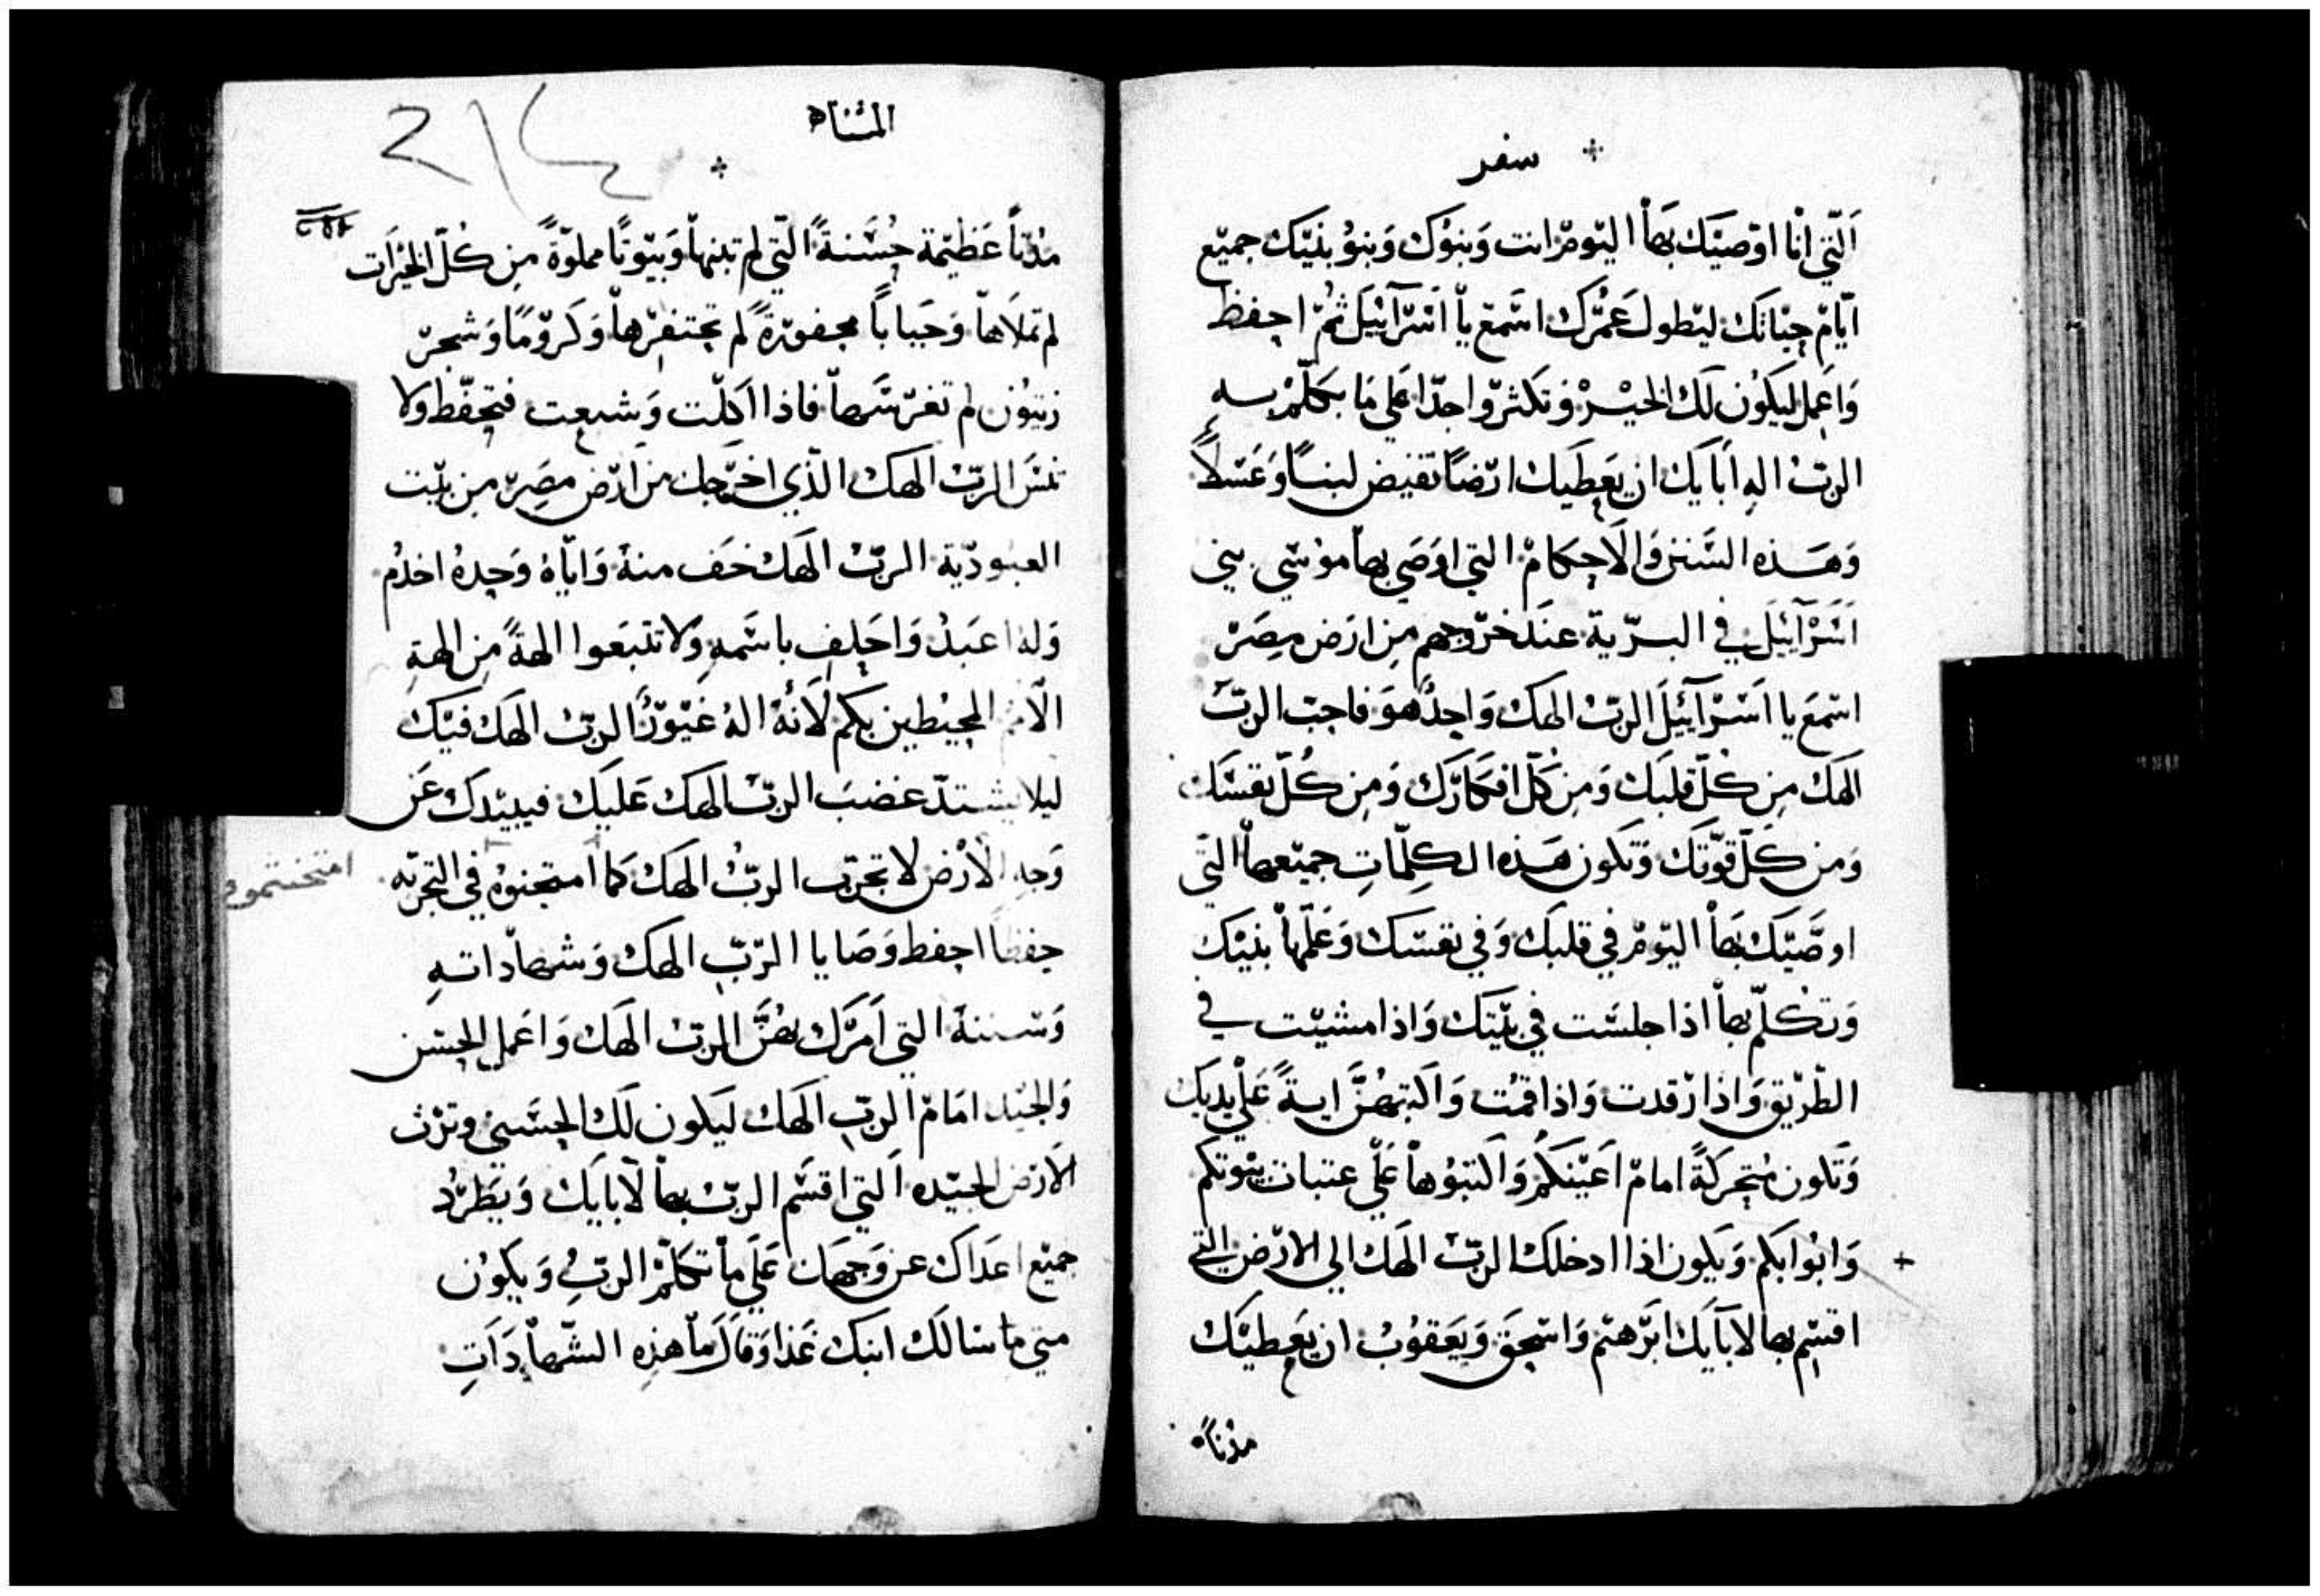 سفر
الّتي انا اوّصيّك بها اليّومّ انت وَبنوْك وَبنوُ بنيّك جميّع
ايّامّ حيّاتك ليّطول عمّرك اسّمعّ ياْ اسّرآئيلَ ثمّ احفظ
وَاعمل ليكوُن لك الخيّر وَتكثرّوا جدّا عَلي مَا تكلّمّ به
الربّ اله ابَايَك ان يعَطيَك ارّضاً تفيض لبناً وَعَسّلاً
وَهَذه السّنن وَالاَحكامْ التي اوَصَي بها موُسّي بني
اسَرْآئيَلَ في البرّية عنَد خرّوجهم مِن ارَض مصَرّ
اسّمعَ يا اسَرْآئيَلَ الربّ الهك وَاحدٌ هوَ فاحبّ الربّ
الهَك مِن كلّ قلبَك وَمِن كلّ افكارّك وَمِن كُلّ نفسّك
وَمن كلّ قوّتك وَتكون هَذه الكلّماتِ جميّعها التّي
اوصّيّك بهَا اليّومّ في قلبَك وَفي نفسّك وَعَلّمهاْ بنيّك
وَتكلّم بهاْ اذا جلسّت في بيّتك وَاذا مشيّت في
الطّريّق وَاذا رّقدت وَاذا قمْت وَاكتبهُنَّ ايةً عَلْي يديَك
وَتكون متحركةً امامّ اعَيْنكُم وَاكتبوُهاْ عَلّي عتبات بيّوتكم
وَابوُابكم وَيكون اذا ادخلك الربّ الهَك الي الارّض التي
اقسّم بها لابآيَك ابرّهيّم وَاسّحقَ وَيَعَقوُبْ ان يَعَطيّك
مدُناً
المثناه
مدُناً عَظيّمة حُسّنةً الّتي لم تبنهاْ وَبيّوتًا مملوّةً مِن كُلّ الخيْرَات
لم تملاَهاْ وَجبَاباً محفورّةً لم تحتفرّهاْ وَكروّمًا وَشجرّ
زيتوُن لم تغرّسّهاْ فاذا اكلّت وَشبعت فتحفّظ وَلا
تنسَ الربّ الهك الذّي اخرّجك من ارّض مصرّ من بيّت
العبوُدّية الربّ الهَك خَف منهُ وَايّاهُ وَحدهُ اخدُم
وَلهُ اعبَدُ وَاحَلف باسّمهِ وَلا تتبَعوا الهةً مِن الهةِ
الامْم المحيْطين بكم لاَنهُ الهٌ غيّوّرٌ الربّ الهَك فيّك
ليلا يشتدّ غضبَ الربّ الهك عَليَك فيبيّدك عَن
وَجه الاَرْض لا تجرّب الربُّ الهَك كما امتحنوُهْ في التجربّه
امتحنتموه
حفظاً احفط وَصَايا الرّبّ الهكْ وَشهاّداته
وَسّننهُ التي امَرّك بهُنَّ الربّ الهَك وَاعَمل الحسّن
وَالجيّد امَامّ الربّ الهَك ليَكون لك الحسَني وترّث
الاَرّض الجيّده التي اقسّم الربّ بها لاَبايَك وَيَطرُّد
جميّع اعَداك عن وَجهَك عَلَي ماْ تكلّمّ الربِّ وَيكوُن
متي ما سّالَك ابنك غَدا وَقالَ ماْ هذِهِ الشّهاْدَاتِ